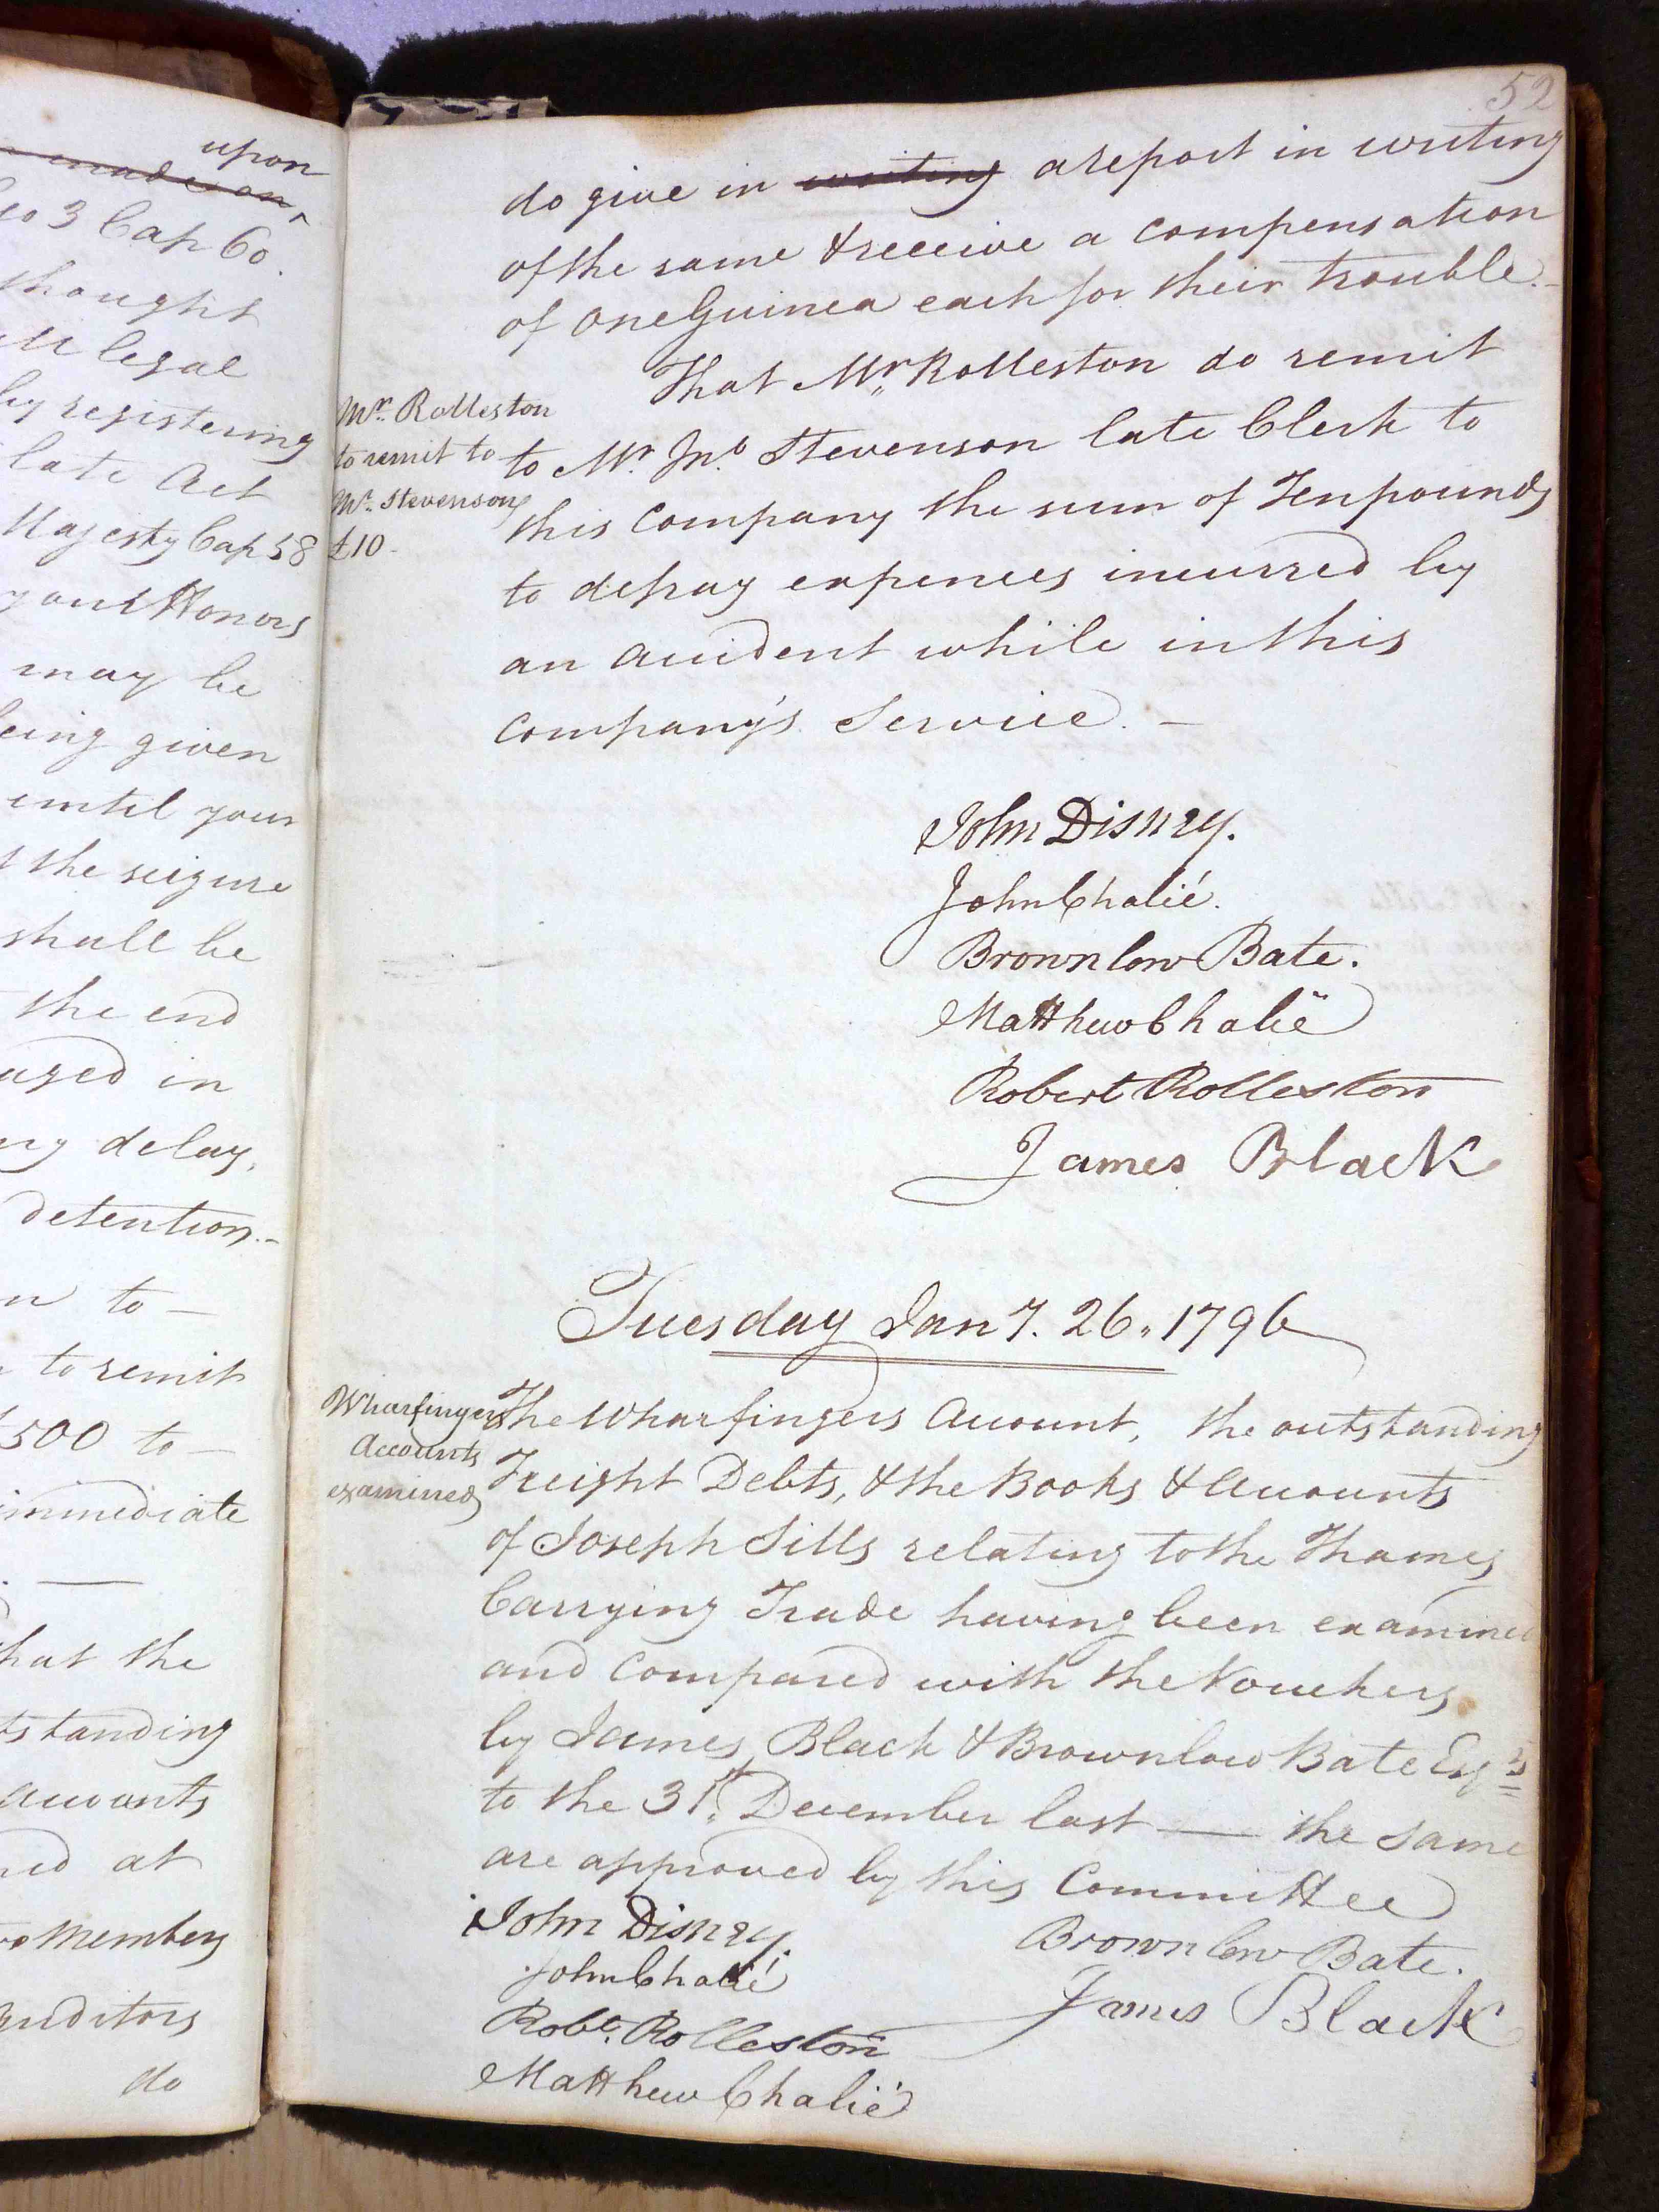 upon
made on
Geo 3 Cap 60.
thought
legal
by registering
late Act
Majesty Cap 58
your Honors
may be
being given
until your
the seizure
shall be
the end
used in
delay,
detention.-
to —
to remit
500 to —
immediate
that the
outstanding
accounts
at
Members
Auditors
do
52
do give in writing a report in writing
of the same & receive a compensation
of one Guinea each for their trouble.-
Mr. Rolleston
to remit to
Mr. Stevenson
£10-
That Mr. Rolleston do remit
to Mr. Jno. Stevenson late Clerk to
this Company the sum of Ten pounds
to defray expences incurred by
an accident while in this
Company's Service. —
John Disney.
John Chalié.
Brownlow Bate.
Matthew Chalië
Robert Rolleston
James Black
Tuesday Jany. 26. 1796
Wharfingers
Accounts
examined
The Wharfingers Account, the outstanding
Freight Debts, & the Books & Accounts
of Joseph Sills relating to the Thames
Carrying Trade having been examined
and compared with the Vouchers
by James Black & Brownlow Bate Esqrs
to the 31st. December last — the same
are approved by this Committee
John Disney.
John Chalié
Robt. Rolleston
Matthew Chalié
Brownlow Bate.
James Black